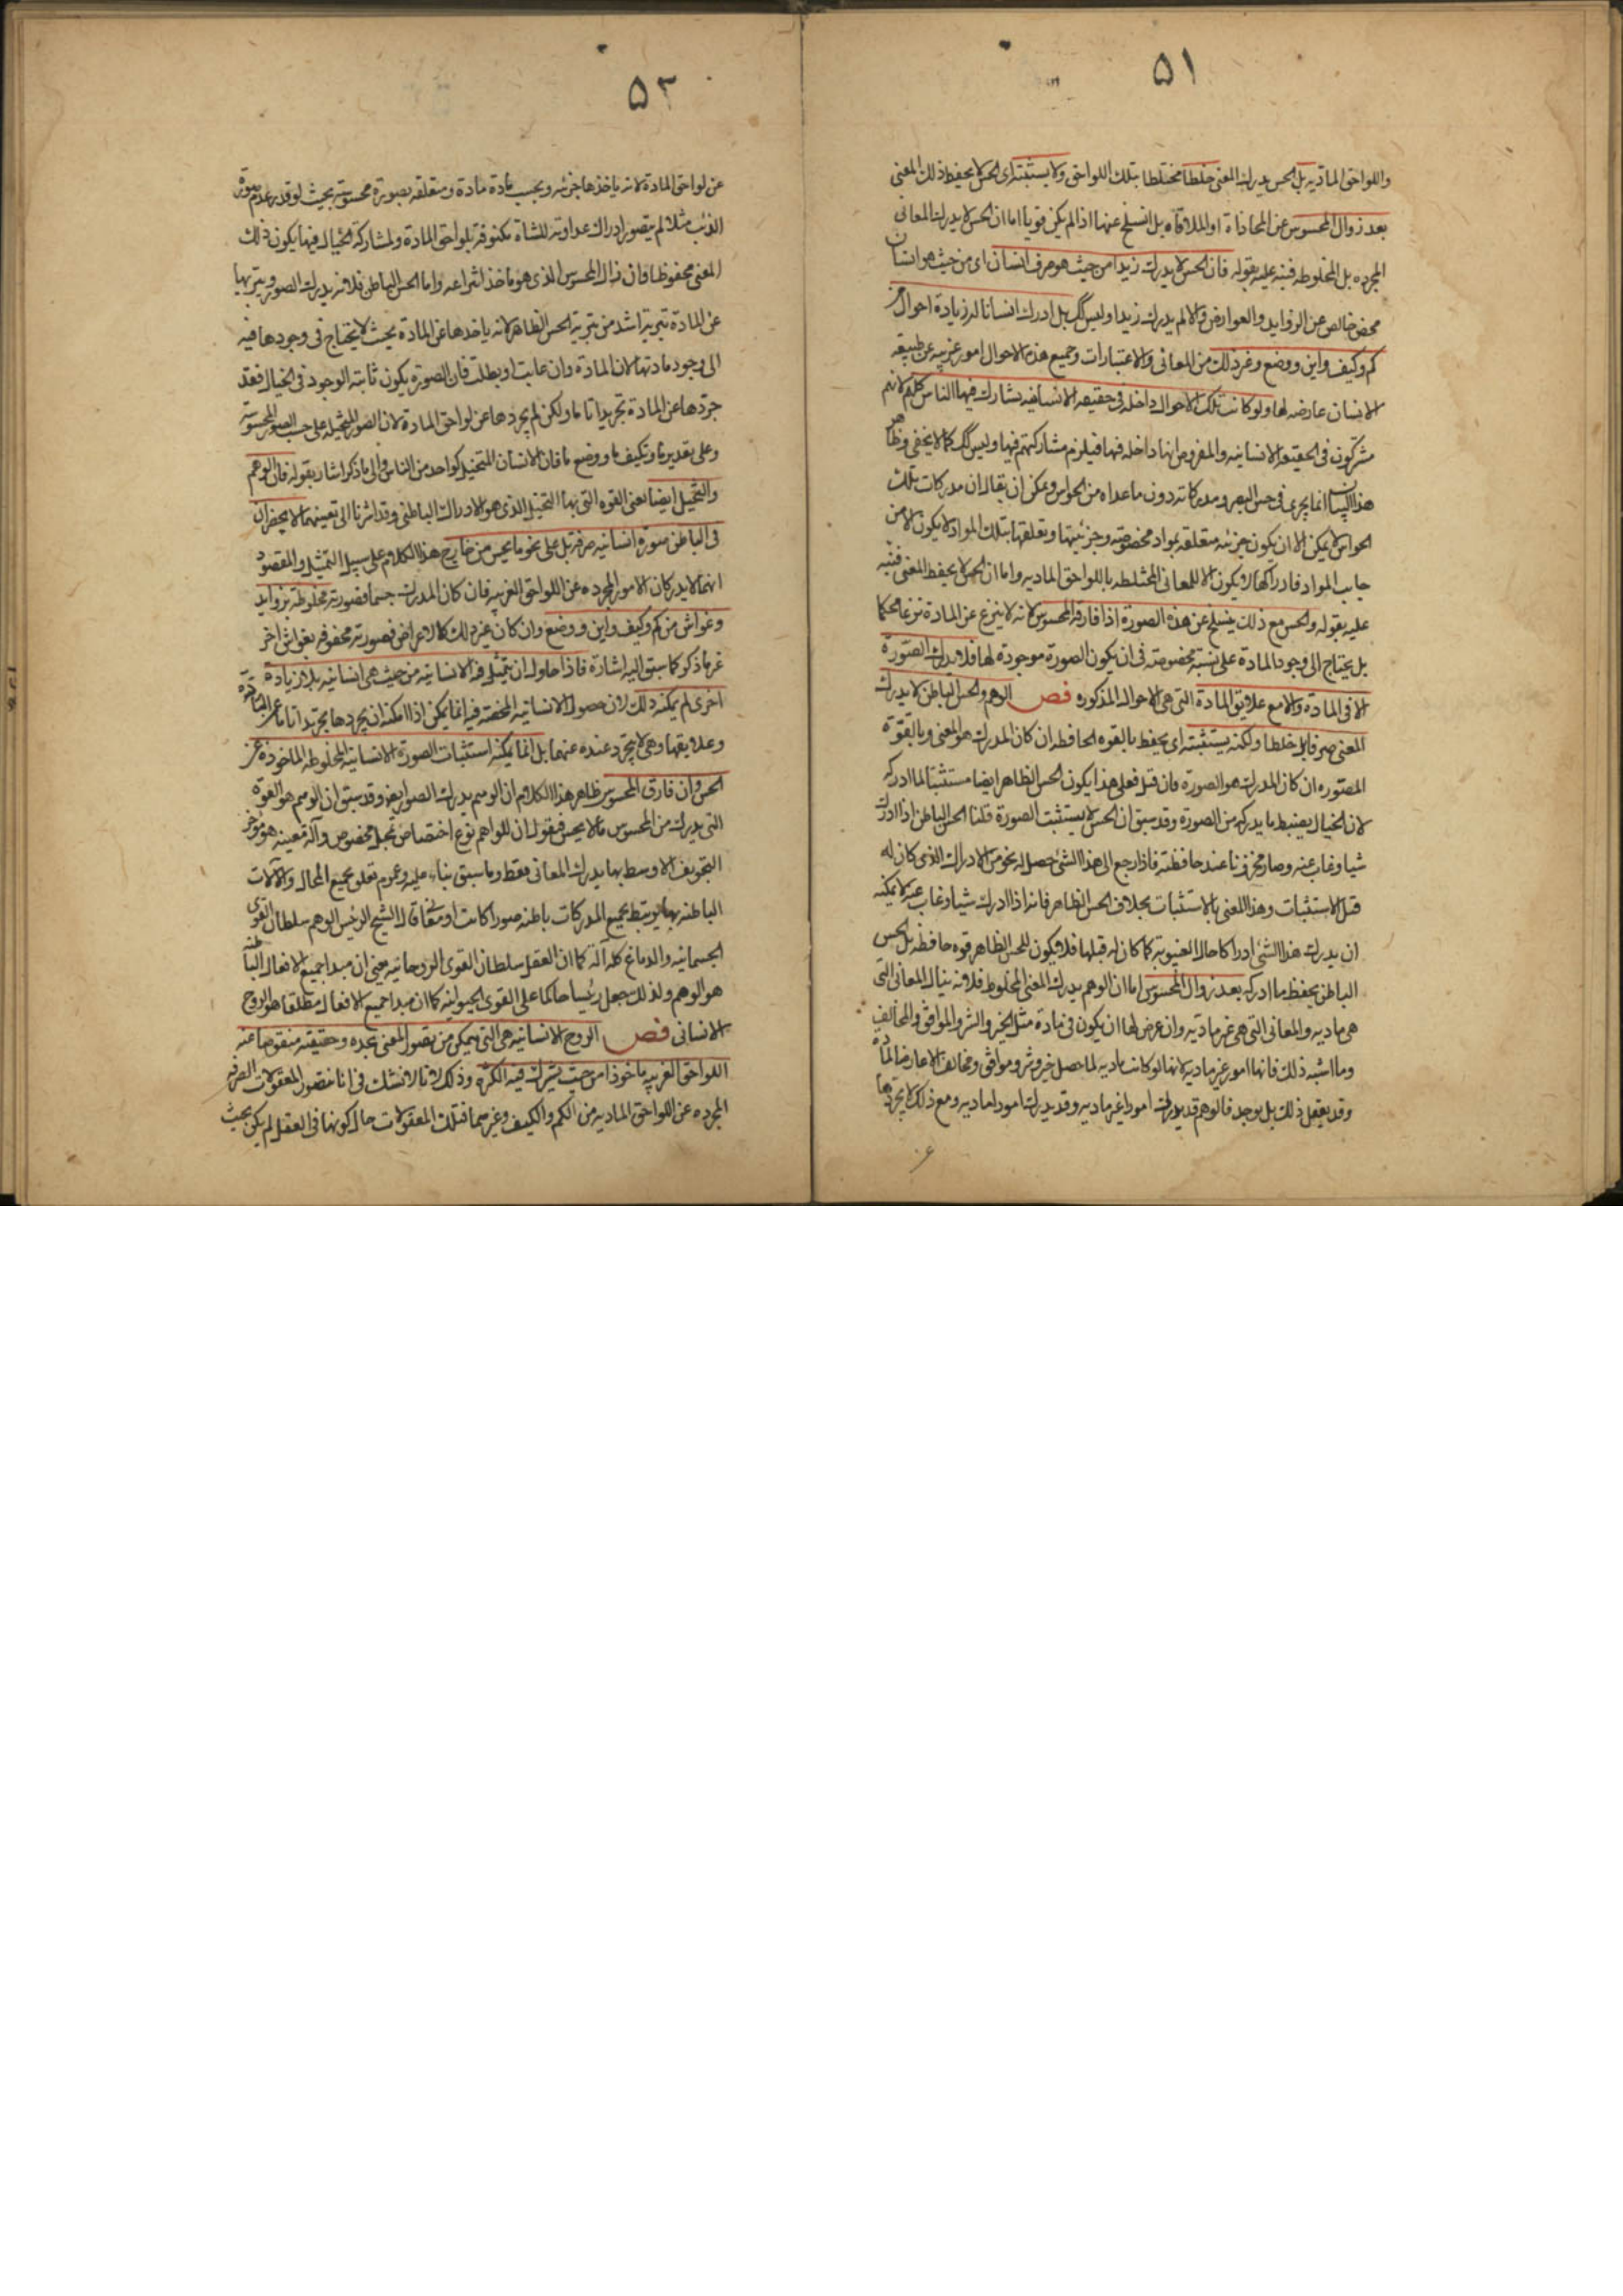 ٥١
واللواحق المادّيه بل الحس يدرك المعنى خلطا مختلطا بتلك اللواحق ولا يستثبته اى الحس لا يحفظ ذلك المعنى
بعد زوال المحسوس عن المحاذاة او الملاقاه بل انسلخ عنها اذا لم يكن قويا اما ان الحس لا يدرك المعانى
المجرده بل المخلوطه فنبه عليه بقوله فان الحس لا يدرك زيدا من حيث هو صرف انسان اى من حيث هو انسان
محض خالص عن الزوايد والعوارض والا لم يدرك زيدا وليس كك بل ادرك انسانا له زيادة احوال من
كم وكيف واين ووضع وغير ذلك من المعانى والاعتبارات وجميع هذه الاحوال امور غريبه عن طبيعه
الانسان عارضه لها ولو كانت تلك الاحوال داخله فى حقيقه الانسانيه تشارك فيها الناس كلهم لانهم
مشتركون فى الحقيقه الانسانيه والمفروض انها داخله فيها فيلزم مشاركتهم فيها وليس كك كما لا يخفى وظاهر
هذا البيان انما يجرى فى حس البصر ومدركاته دون ما عداه من الحواس ويمكن ان يقال ان مدركات تلك
الحواس لا يمكن الا ان يكون جزئيه متعلقه بمواد مخصوصه وجزئيتها وتعلقها بتلك المواد لا يكون الا من
جانب المواد فادراكها لا يكون الا للمعانى المختلطه باللواحق الماديه واما ان الحس لا يحفظ المعنى فنبه
عليه بقوله والحس مع ذلك ينسلخ عن هذه الصورة اذا فارقه المحسوس لانه لا ينزع عن المادة نزعا محكما
بل يحتاج الى وجود المادة على نسبة مخصوصه فى ان يكون الصورة موجودة لها فلا يدرك الصورة
الا فى المادة والا مع علايق المادة التى هى الاحوال المذكوره فص الوهم والحس الباطن لا يدرك
المعنى صرفا بل خلطا ولكنه يستثبته اى يحفظ بالقوه الحافظه ان كان المدرك هو المعنى وبالقوّة
المصوره ان كان المدرك هو الصورة فان قيل فعلى هذا يكون الحس الظاهر ايضا مستثبتا لما ادركه
لان الخيال يضبط ما يدركه من الصورة وقد سبق ان الحس لا يستثبت الصورة قلنا الحس الباطن اذا ادرك
شيا وغاب عنه وصار مخزونا عند حافظته فاذا رجع الى هذا الشئ حصل له نحو من الادراك الذى كان له
قبل الاستثبات وهذا المعنى بالاستثبات بخلاف الحس الظاهر فانه اذا ادرك شيا وغاب عنه لا يمكنه
ان يدرك هذا الشئ ادراكا حال الغيبوبة كما كان له قبلها فلا يكون للحس الظاهر قوه حافظه بل الحس
الباطن يحفظ ما ادركه بعد زوال المحسوس اما ان الوهم يدرك المعنى المخلوط فلانه ينال المعانى التى
هى ماديه والمعانى التى هى غير ماديه وان عرض لها ان يكون فى مادة مثل الخير والشر والموافق والمخالف
وما اشبه ذلك فانها امور غير ماديه لانها لو كانت ماديه لما حصل خير وشر وموافق ومخالف الا عارضا لمادة
وقد يعقل ذلك بل يوجد فالوهم قد يدرك امورا غير ماديه وقد يدرك امورا ماديه ومع ذلك لا يجردها
٥٢
عن لواحق المادة لانه ياخذها جزئيه وبحسب مادة مادة ومتعلقه بصورة محسوسة بحيث لو قدر عدم صورة
الذئب مثلا لم يتصور ادراك عداوته للشاة مكنوفة بلواحق المادة ولمشاركة الخيال فيها يكون ذلك
المعنى محفوظا وان زال المحسوس الذى هو ماخذ انتزاعه واما الحس الباطن فلانه يدرك الصور ويبريها
عن المادة تبرية اشد من تبرية الحس الظاهر لانه ياخذها عن المادة بحيث لا يحتاج فى وجودها فيه
الى وجود مادتها لان المادة وان غابت او بطلت فان الصورة يكون ثابته الوجود فى الخيال فقد
جردها عن المادة تجريدا تاما ولكن لم يجردها عن لواحق المادة لان الصور المتخيله على حسب الصور المحسوسة
وعلى تقدير ما وتكيف ما ووضع ما فان الانسان المتخيل كواحد من الناس والى ما ذكر اشار بقوله فان الوهم
والتخيل ايضا يعنى القوه التى بها التخيل الذى هو الادراك الباطنى وقد اشرنا الى تعينهما لا يحضران
فى الباطن صورة انسانيه صرفة بل على نحو ما يحس من خارج هذا الكلام على سبيل التمثيل والمقصود
انهما لا يدركان الامور المجرده عن اللواحق الغريبه فان كان المدرك جسما فصورته مخلوطة بزوايد
وغواش من كم وكيف واين ووضع وان كان غير ذلك كالاعراض فصورته محفوفه بغواش اخر
غير ما ذكر كما سبق اليه اشارة فاذا حاول ان يتمثل فيه الانسانيه من حيث هى انسانيه بلا زيادة
اخرى لم يمكنه ذلك لان حصول الانسانيه المحضه فيه انما يمكن اذا امكنه ان يجردها تجريدا تاما عن المادة
وعلايقها وهى لا يتجرد عنده عنهما بل انما يمكنه استثبات الصورة الانسانيه المخلوطه الماخوذة عن
الحس وان فارق المحسوس ظاهر هذا الكلام ان الوهم يدرك الصور ايضا وقد سبق ان الوهم هو القوة
التى يدرك من المحسوس ما لا يحس فنقول ان للواهم نوع اختصاص بمحل مخصوص وآلة معينه هو مؤخر
التجويف الاوسط بها يدرك المعانى فقط وما سبق بناء عليه وعموم تعلق بجميع المحال والآلات
الباطنه بها يرتبط بجميع المدركات باطنه صورا كانت او معانى قال الشيخ الرئيس الوهم سلطان القوى
الجسمانيه والدماغ كله آلة كما ان العقل سلطان القوى الروحانيه يعنى ان مبدا جميع الافعال الباطنه
هو الوهم ولذلك جعل رئيسا حاكما على القوى الحيوانيه كما ان مبدا جميع الافعال مطلقا هو الروح
الانسانى فص الروح الانسانيه هى التى يتمكن من تصور المعنى بحده وحقيقته منقوضا عنه
اللواحق الغريبه ماخوذا من حيث يشترك فيه الكثرة وذلك لانا لا نشك فى انا نتصور المعقولات الصرفه
المجرده عن اللواحق الماديه من الكم والكيف وغيرهما فتلك المعقولات حال كونها فى العقل لم يكن بحيث